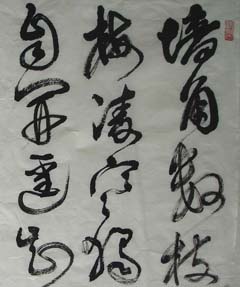 墙角数枝
梅凌寒独
自开遥知